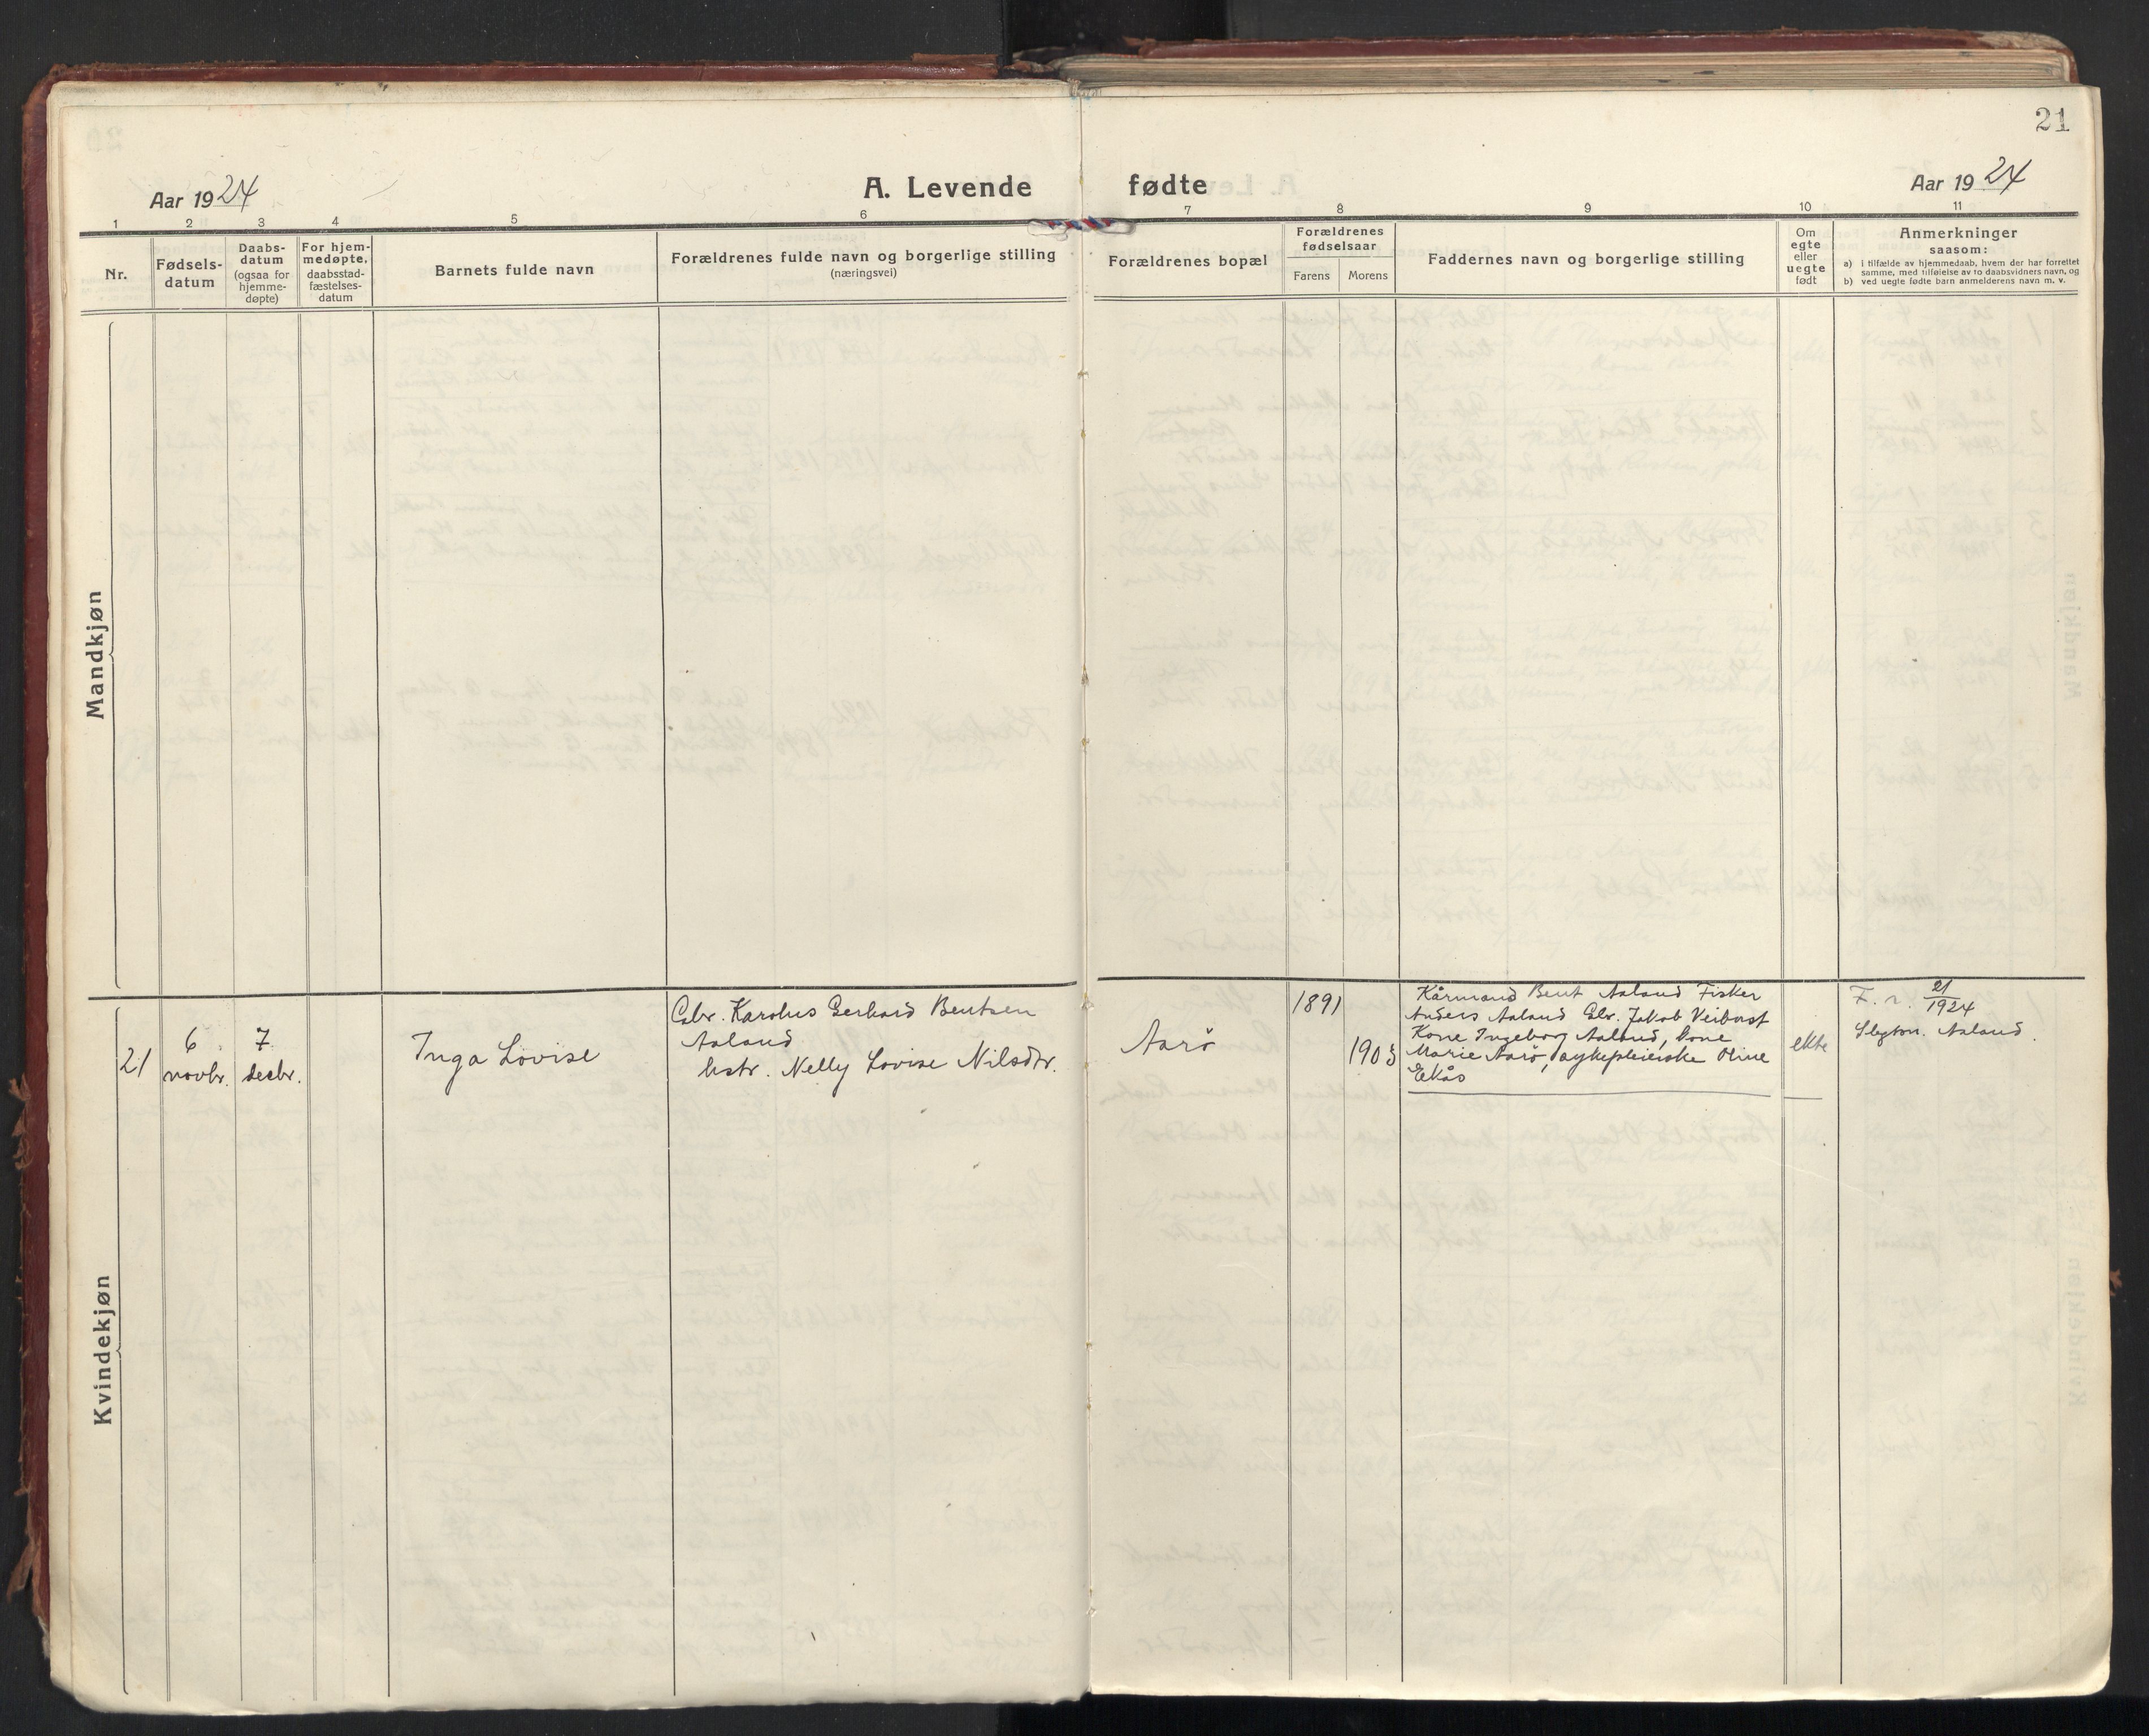 21
Aar 1924
A. Levende fødte
Aar 1924
1 2 3 4 5 6 7 8 9 10 11
Nr.
Fødsels-
datum
Daabs-
datum
(ogsaa for
hjemme-
døpte)
For hjem-
medøpte,
daabsstad-
fæstelses-
datum
Barnets fulde navn
Forældrenes fulde navn og borgerlige stilling
(næringsvei)
Forældrenes bopæl
Forældrenes
fødselsaar
Farens Morens
Faddernes navn og borgerlige stilling
Om
egte
eller
uegte
født
Anmerkninger
saasom:
a) i tilfælde av hjemmedaab, hvem der har forrettet
samme, med tilføielse av to daabsvidners navn, og
b) ved uegte fødte barn anmelderens navn m. v.
Mandkjøn
Kvindekjøn
21
6
novbr.
7
decbr.
Inga Lovise
Gbr. Karolus Gerhard Bentsen
Aaland
hstr. Nelly Lovise Nilsdtr.
Aarø
1891
1903
Kårmand Bent Aaland Fisker
Anders Aaland Gbr. Jakob
Kone Ingeborg Aaland, kone
Marie Aarø, sykepleierske Oline
Ekås
ekte
F. r. 21/1924
Aaland.